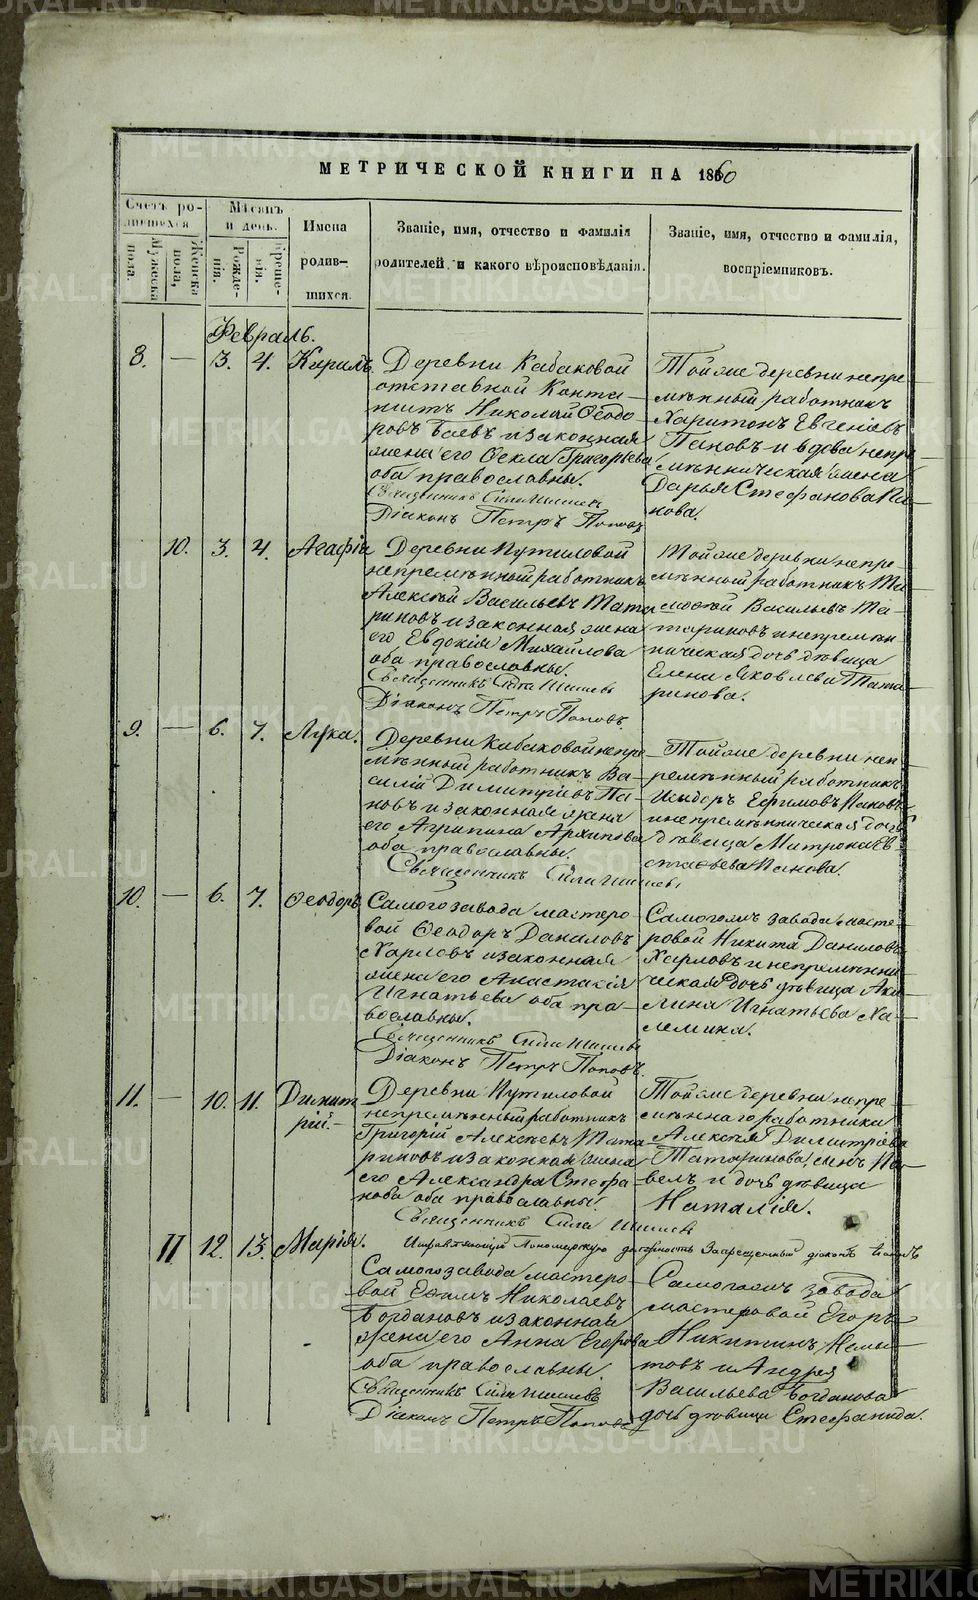 МЕТРИЧЕСКОЙ КНИГИ НА 1860
Счетъ ро-
дившихся
Мужеска
пола.
Женска
пола,
Мѣсяцъ
и день.
Рожде-
нія.
Креще-
нія.
Имена
родив-
шихся.
Званіе, имя, отчество и фамилія
родителей, и какого вѣроисповѣданія.
Званіе, имя, отчество и фамилія,
воспріемниковъ.
Февраль.
8. — 3. 4. Кирилъ
Деревни Кабаковой
отставной Канто-
нистъ Николай Ѳеодо
ровъ Баевъ и законная
жена его Ѳекла Григорьева
оба православны.
Священникъ
Діаконъ Петръ Поповъ
Тойже деревни непре
мѣнный работникъ
Харитонъ Евгеніевъ
Пановъ и вдова непре
мѣнническая жена
Дарья Стефанова Па-
нова.
10. 3. 4. Агафія
Деревни Путиловой
непремѣнный работникъ
Алексѣй Васильевъ Тата
риновъ и законная жена
его Евдокія Михайлова
оба православны.
Священникъ
Діаконъ Петръ Поповъ.
Тойже деревни непре-
мѣнной работникъ Ти
моѳей Васильевъ Та-
тариновъ и непремѣн
ническая дочь дѣвица
Елена Яковлева Тата
ринова.
9. — 6. 7. Лука.
Деревни Кабаковой непре
мѣнный работникъ Ва-
силій Димитріевъ Па-
новъ и законная жена
его Агрипина Архипова
оба православны.
Священникъ
Тойже деревни неп-
ремѣнный работникъ
Исидоръ Ефимовъ Пановъ
и непремѣнническая дочь
дѣвица Митрона Ев-
стафьева Панова.
10. — 6. 7. Ѳеодоръ
Самого завода мастеро-
вой Ѳеодоръ Даниловъ
Харловъ и законная
жена его Анастасія
Игнатьева оба пра-
вославны.
Священникъ
Діаконъ Петръ Поповъ.
Самогожъ завода масте-
ровой Никита Даниловъ
Харловъ и непремѣнни
ческая дочь дѣвица Аки
лина Игнатьева Ха-
лемина.
11. — 10. 11. Димит
рій.
Деревни Путиловой
непремѣнный работникъ
Григорій Алексѣевъ Тата
риновъ и законная жена
его Александра Стефа
нова оба православны.
Священникъ
Исправляющій Пономарскую должность Запрещенный діаконъ
Тойже деревни непре
мѣннаго работника
Алексѣя Димитріева
Татаринова, сынъ Па-
велъ и дочь дѣвица
Наталія.
11 12. 13. Марія.
Самого завода мастеро-
вой Ефимъ Николаевъ
Богдановъ и законная
жена его Анна Егорова
оба православны.
Священникъ
Діаконъ Петръ Поповъ
Самогожъ завода
мастеровой Егоръ
Никитинъ
и Андрея
Васильева Богданова
дочь дѣвица Стефанида.
METRIKI.GASO-URAL.RU